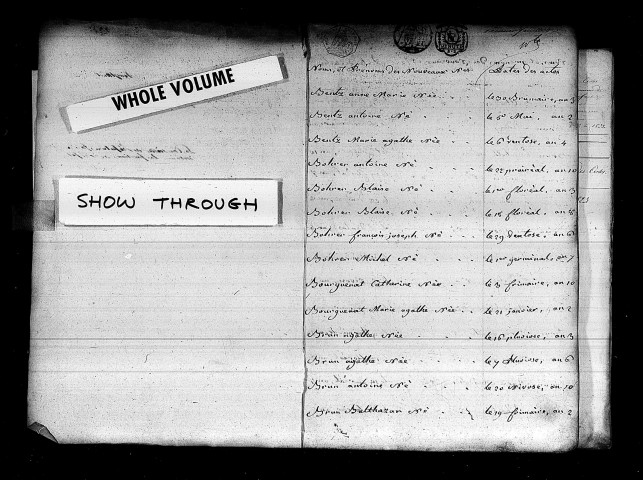 WHOLE VOLUME
SHOW THROUGH
Noms et Prénoms des Nouveaux Nés Dates des actes
Bentz anne Marie Née le 30 Brumaire, an 3
Bentz antoine Né le 6 Mai, an 2
Bentz Marie agathe Née le 6 ventose, an 4
Bohrer antoine Né le 22 prairéal, an 10
Bohrer Blaise Né le 1er floréal, an 13
Bohrer Blaise Né le 18 floréal, an
Bohrer françois joseph Né le 29 ventose, an 6
Bohrer Michel Né le 1er germinal, an 7
Bourguenat Catharine Née le 3 frimaire, an 10
Bourguenat Marie agathe Née le 21 janvier, an 2
Brun agathe Née le 16 pluviose, an 13
Brun agathe Née le 7 Pluviose, an 6
Brun antoine Né le 20 Nivose, an 10
Brun Balthazar Né le 19 frimaire, an 2